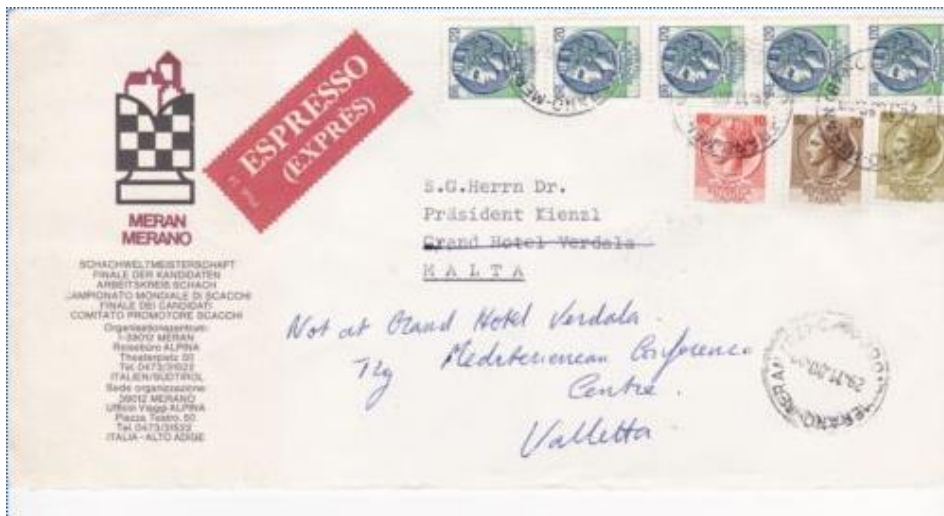 ESPRESSO
(EXPRÈS)
MERAN
MERANO
SCHACHWELTMEISTERSCHAFT
FINALE DER KANDIDATEN
ARBEITSKREIS SCHACH
CAMPIONATO MONDIALE DI SCACCHI
FINALE DEI CANDIDATI
COMITATO PROMOTORE SCACCHI
Organisationszentrum:
I-39012 MERAN
Reisebüro ALPINA
Theaterplatz 50
Tel. 0473/31522
ITALIEN/SÜDTIROL
Sede organizzazione:
39012 MERANO
Ufficio Viaggi ALPINA
Piazza Teatro, 50
Tel. 0473/31522
ITALIA - ALTO ADIGE
S.G.Herrn Dr.
Präsident Kienzl
Grand Hotel Verdala
MALTA
Not at Grand Hotel Verdala.
Try Mediterrenean Conference
Centre.
Valletta